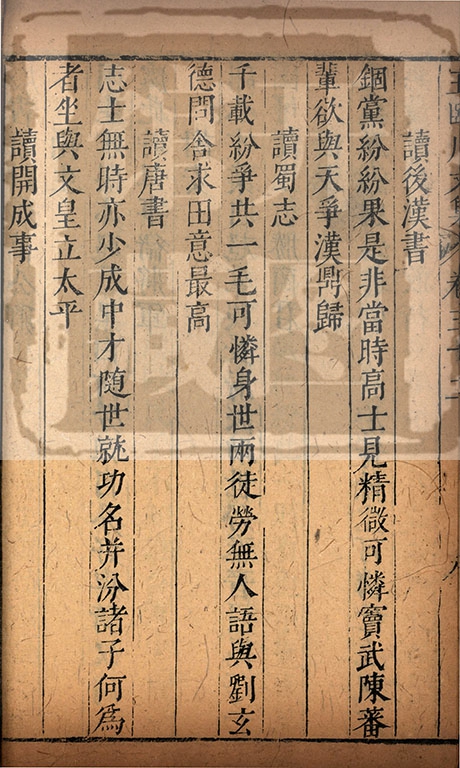 讀後漢書
錮黨紛紛果是非當時高士見精微可憐竇武陳蕃
輩欲與天爭漢鼎歸
讀蜀志
千載紛爭共一毛可憐身世兩徒勞無人語與劉玄
德問舍求田意最高
讀唐書
志士無時亦少成中才隨世就功名并汾諸子何爲
者坐與文皇立太平
讀開成事